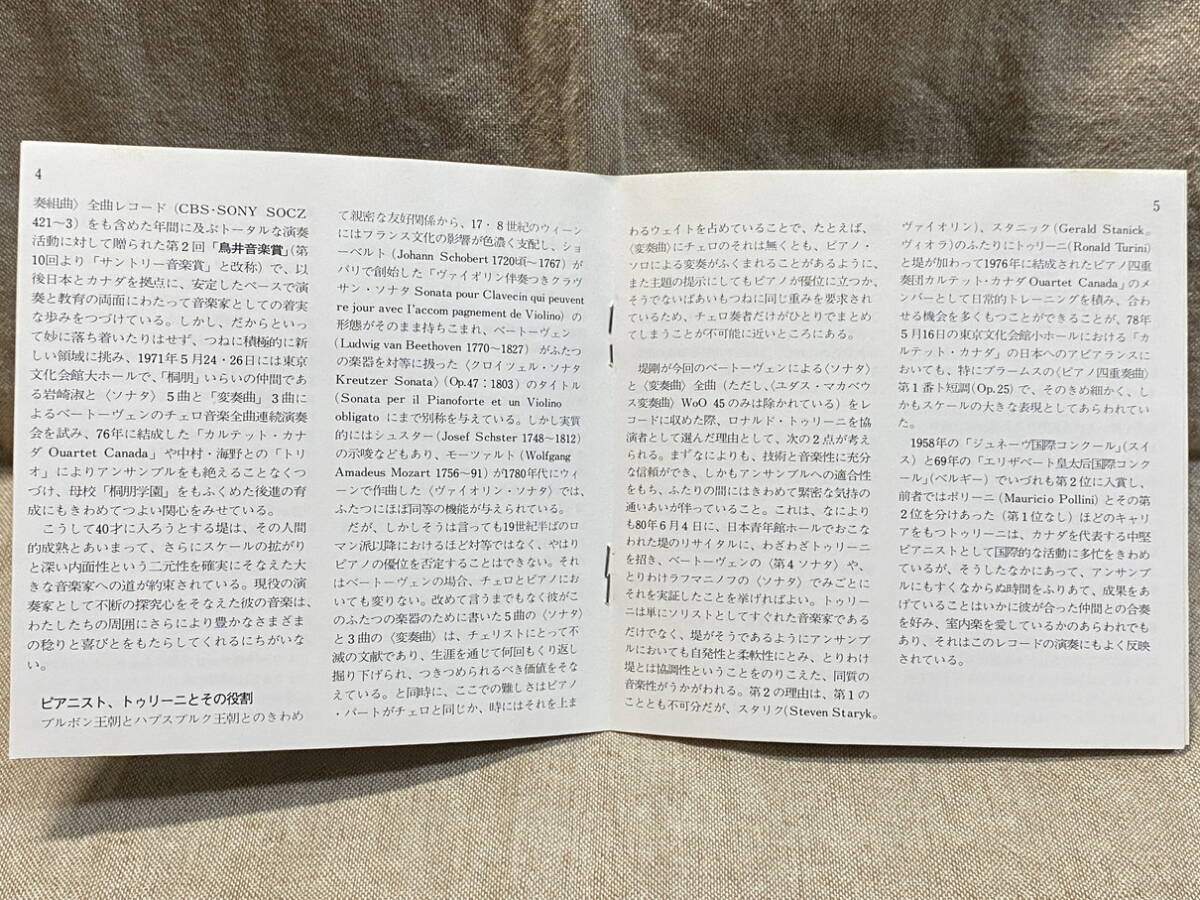 4
奏組曲〉全曲レコード (CBS・SONY SOCZ
421〜3) をも含めた年間に及ぶトータルな演奏
活動に対して贈られた第2回「鳥井音楽賞」(第
10回より「サントリー音楽賞」と改称) で、以
後日本とカナダを拠点に、安定したペースで演
奏と教育の両面にわたって音楽家としての着実
な歩みをつづけている。しかし、だからといっ
て妙に落ち着いたりはせず、つねに積極的に新
しい領域に挑み、1971年5月24・26日には東京
文化会館大ホールで、「桐朋」いらいの仲間であ
る岩崎淑と〈ソナタ〉5曲と「変奏曲」3曲に
よるベートーヴェンのチェロ音楽全曲連続演奏
会を試み、76年に結成した「カルテット・カナ
ダ Ouartet Canada」や中村・海野との「トリ
オ」によりアンサンブルをも絶えることなくつ
づけ、母校「桐朋学園」をもふくめた後進の育
成にもきわめてつよい関心をみせている。
こうして40才に入ろうとする堤は、その人間
的成熟とあいまって、さらにスケールの拡がり
と深い内面性という二元性を確実にそなえた大
きな音楽家への道が約束されている。現役の演
奏家として不断の探究心をそなえた彼の音楽は、
わたしたちの周囲にさらにより豊かなさまざま
の稔りと喜びとをもたらしてくれるにちがいな
い。
ピアニスト、トゥリーニとその役割
ブルボン王朝とハプスブルク王朝とのきわめ
て親密な友好関係から、17・8世紀のウィーン
にはフランス文化の影響が色濃く支配し、ショ
ーベルト (Johann Schobert 1720頃〜1767) が
パリで創始した「ヴァイオリン伴奏つきクラヴ
サン・ソナタ Sonata pour Clavecin qui peuvent
re jour avec l'accom pagnement de Violino) の
形態がそのまま持ちこまれ、ベートーヴェン
(Ludwig van Beethoven 1770〜1827) がふたつ
の楽器を対等に扱った〈クロイツェル・ソナタ
Kreutzer Sonata〉(Op.47：1803) のタイトル
(Sonata per il Pianoforte et un Violino
obligato にまで別称を与えている。しかし実質
的にはシュスター (Josef Schster 1748〜1812)
の示唆などもあり、モーツァルト (Wolfgang
Amadeus Mozart 1756〜91) が1780年代にウィ
ーンで作曲した〈ヴァイオリン・ソナタ〉では、
ふたつにほぼ同等の機能が与えられている。
だが、しかしそうは言っても19世紀半ばのロ
マン派以降におけるほど対等ではなく、やはり
ピアノの優位を否定することはできない。それ
はベートーヴェンの場合、チェロとピアノにお
いても変りない。改めて言うまでもなく彼がこ
のふたつの楽器のために書いた5曲の〈ソナタ〉
と3曲の〈変奏曲〉は、チェリストにとって不
滅の文献であり、生涯を通じて何回もくり返し
掘り下げられ、つきつめられるべき価値をそな
えている。と同時に、ここでの難しさはピアノ
・パートがチェロと同じか、時にはそれを上ま
5
わるウェイトを占めていることで、たとえば、
〈変奏曲〉にチェロのそれは無くとも、ピアノ・
ソロによる変奏がふくまれることがあるように、
また主題の提示にしてもピアノが優位に立つか、
そうでないばあいもつねに同じ重みを要求され
ているため、チェロ奏者だけがひとりでまとめ
てしまうことが不可能に近いところにある。
堤剛が今回のベートーヴェンによる〈ソナタ〉
と〈変奏曲〉全曲 (ただし、〈ユダス・マカベウ
ス変奏曲〉WoO 45 のみは除かれている) をレ
コードに収めた際、ロナルド・トゥリーニを協
演者として選んだ理由として、次の2点が考え
られる。まずなによりも、技術と音楽性に充分
な信頼ができ、しかもアンサンブルへの適合性
をもち、ふたりの間にはきわめて緊密な気持の
通いあいが伴っていること。これは、なにより
も80年6月4日に、日本青年館ホールでおこな
われた堤のリサイタルに、わざわざトゥリーニ
を招き、ベートーヴェンの〈第4ソナタ〉や、
とりわけラフマニノフの〈ソナタ〉でみごとに
それを実証したことを挙げればよい。トゥリー
ニは単にソリストとしてすぐれた音楽家である
だけでなく、堤がそうであるようにアンサンブ
ルにおいても自発性と柔軟性にとみ、とりわけ
堤とは協調性ということをのりこえた、同質の
音楽性がうかがわれる。第2の理由は、第1の
こととも不可分だが、スタリク(Steven Staryk。
ヴァイオリン)、スタニック(Gerald Stanick。
ヴィオラ)のふたりにトゥリーニ(Ronald Turini)
と堤が加わって1976年に結成されたピアノ四重
奏団カルテット・カナダ Ouartet Canada」のメ
ンバーとして日常的トレーニングを積み、合わ
せる機会を多くもつことができることが、78年
5月16日の東京文化会館小ホールにおける「カ
ルテット・カナダ」の日本へのアピアランスに
おいても、特にブラームスの〈ピアノ四重奏曲〉
第1番ト短調(Op.25)で、そのきめ細かく、し
かもスケールの大きな表現としてあらわれてい
た。
1958年の「ジュネーヴ国際コンクール」(スイ
ス) と69年の「エリザベート皇太后国際コンク
ール」(ベルギー) でいづれも第2位に入賞し、
前者ではポリーニ (Mauricio Pollini) とその第
2位を分けあった (第1位なし) ほどのキャリ
アをもつトゥリーニは、カナダを代表する中堅
ピアニストとして国際的な活動に多忙をきわめ
ているが、そうしたなかにあって、アンサンブ
ルにもすくなからぬ時間をふりあて、成果をあ
げていることはいかに彼が合った仲間との合奏
を好み、室内楽を愛しているかのあらわれでも
あり、それはこのレコードの演奏にもよく反映
されている。